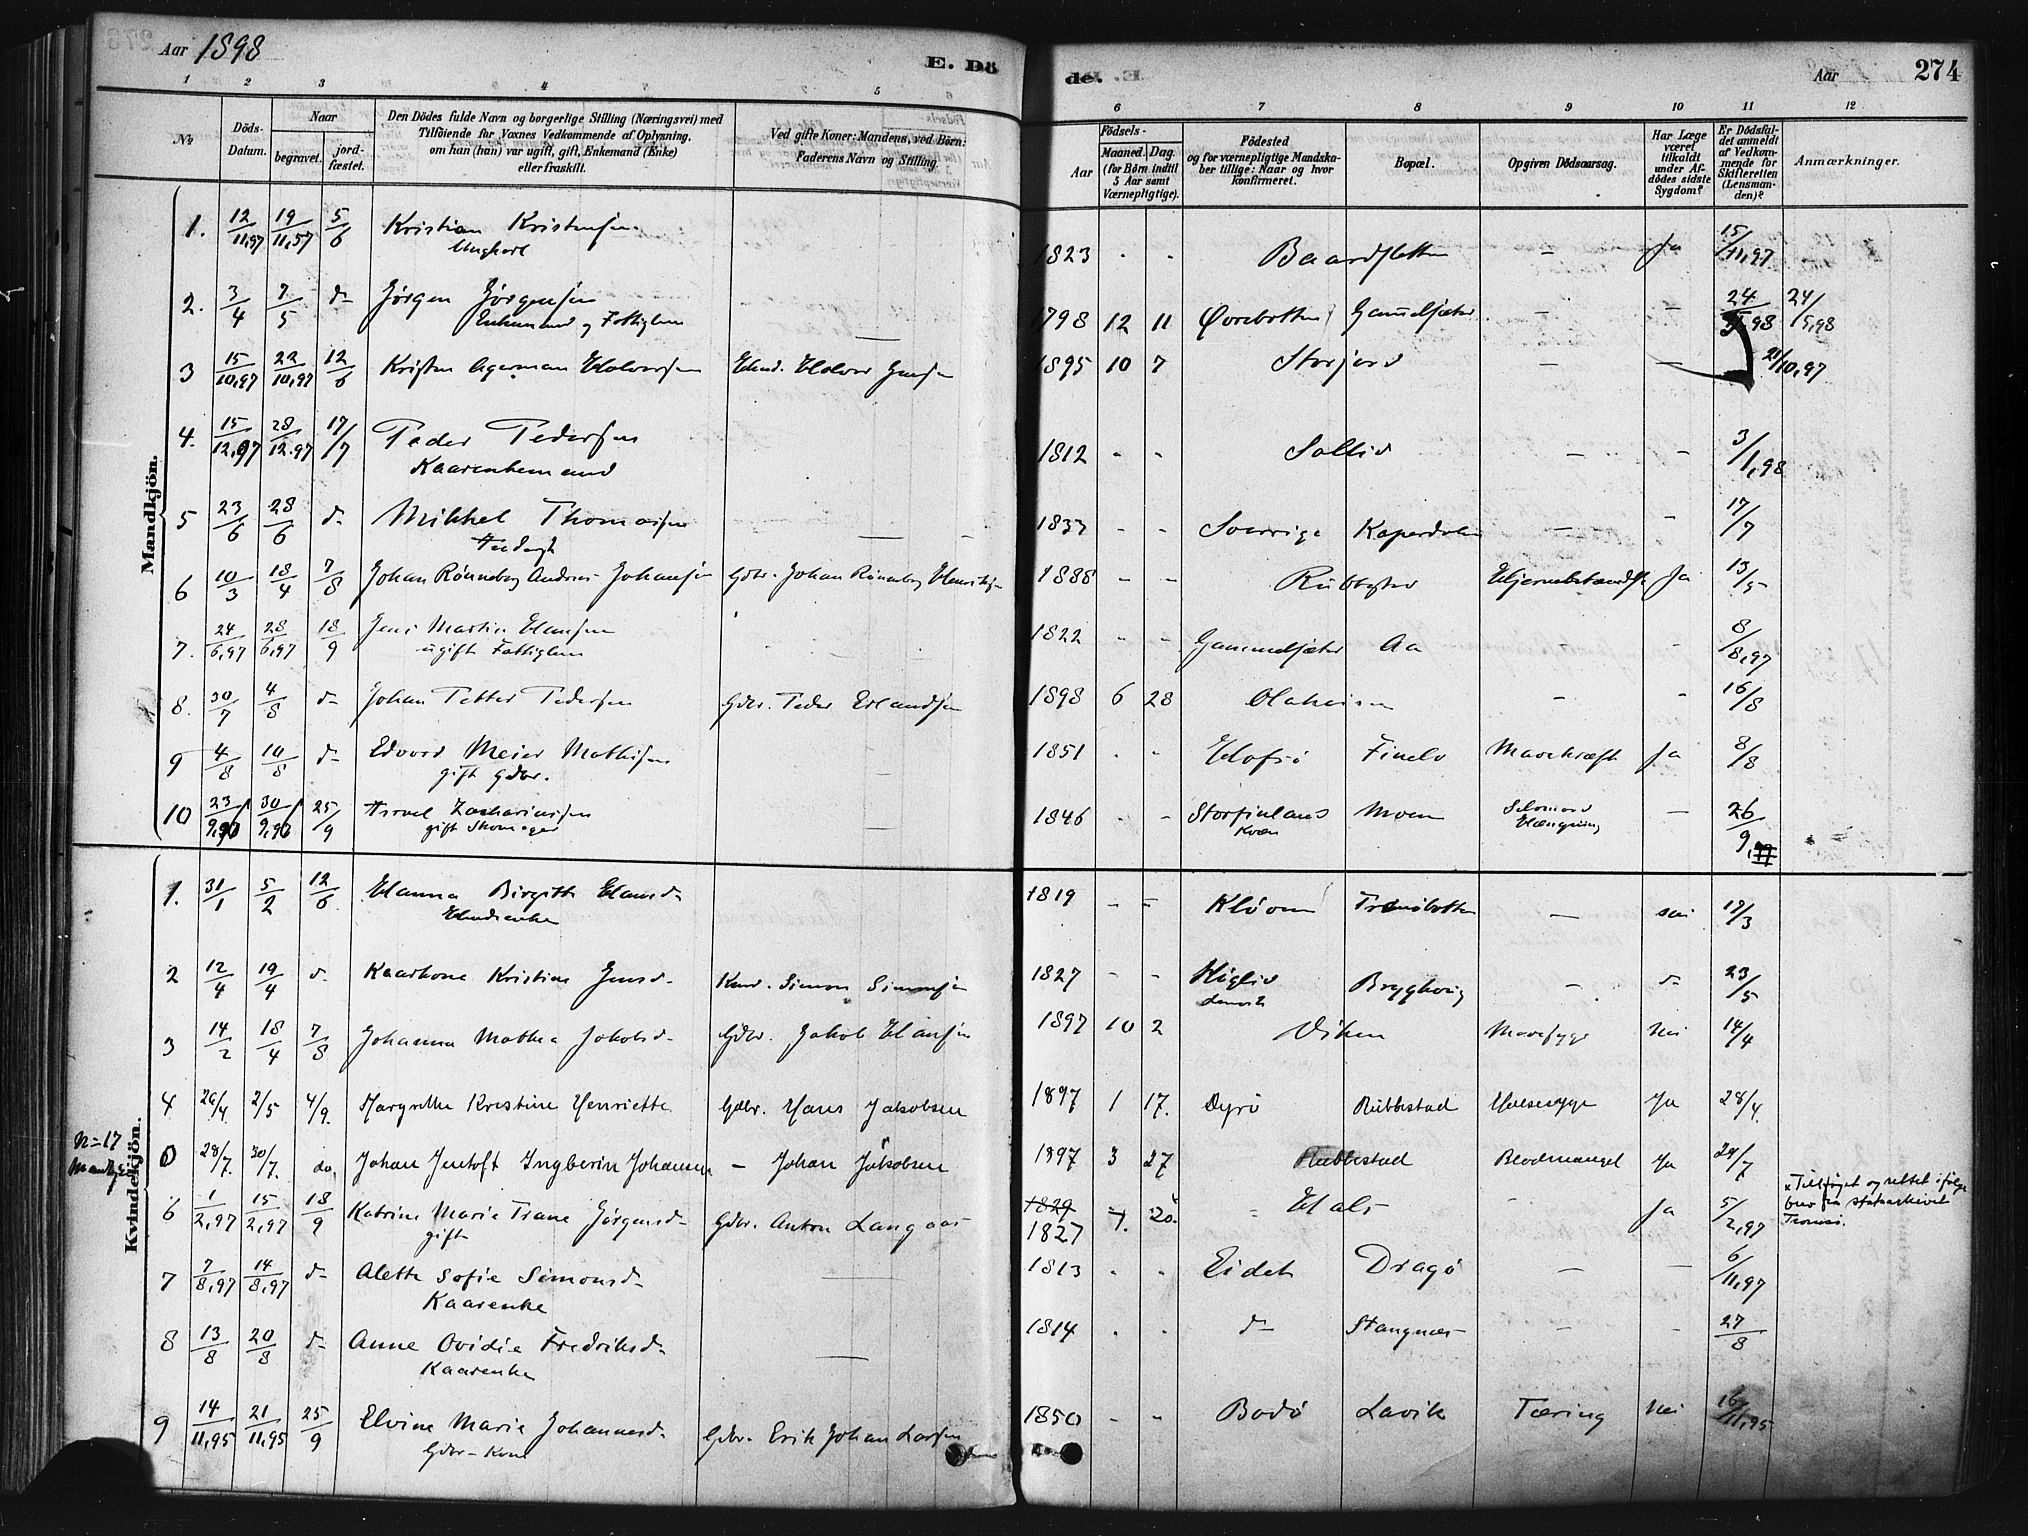 Aar 1898
E. Dö
de.
Aar
274
1 2 3 4 5 6 7 8 9 10 11 12
No
Döds-
Datum.
Naar
begravet.
jord-
fæstet.
Den Dödes fulde Navn og borgerlige Stilling (Næringsvei) med
Tilföiende for Voxnes Vedkommende af Oplysning,
om han (hun) var ugift, gift, Enkemand (Enke)
eller fraskilt.
Ved gifte Koner: Mandens, ved Börn:
Faderens Navn og Stilling.
Födsels-
Aar
Maaned. Dag.
(for Börn indtil
5 Aar samt
Værnepligtige).
Födested
og for værnepligtige Mandska-
ber tillige: Naar og hvor
konfirmeret.
Bopæl.
Opgiven Dödsaarsag.
Har Læge
været
tilkaldt
under Af-
dödes sidste
Sygdom?
Er Dödsfal-
det anmeldt
af Vedkom-
mende for
Skifteretten
(Lensman-
den)?
Anmærkninger.
Mandkjön.
1. 12/11,97 19/11,97 5/6 Kristian Kristensen 1823 - - Baardsletten - Ja 15/11,97
Ungkarl
2. 3/4 7/5 d- Jørgen Jørgensen — 1798 12 11 Øvrebotten Gammelsæter - - 24/5,98 24/5,98
Enkemand og Fattiglem
3 15/10,97 22/10,97 12/6 Kristen Agerman Halvorsen Hmd. Halvor Jensen 1895 10 7 Storjord - — 21/10,97
4. 15/12,97 28/12,97 17/7 Peder Pedersen 1812 - - Sollid - - 3/1,98
Kaarenkemand
5 23/6 28/6 d- Mikkel Thomassen — 1837 - - Sverrige Kaperdalen - - 17/7
Inderst
6 10/3 18/4 7/8 Johan Rønneberg Andreas Johansen Gdbr. Johan Rønneberg Henriksen 1888 - - Rubbestad Hjernebetændelse Ja 13/5
7. 24/6,97 28/6,97 18/9 Jens Martin Hansen 1822 - - Gammelsæter Aa - 8/8,97
ugift Fattiglem
8. 30/7 4/8 d- Johan Petter Pedersen Gdbr. Peder Erlandsen 1898 6 28 Olaheisen - - 16/8
9 4/8 10/8 d- Edvard Meier Mathisen - 1851 - - Hofsø Finelv Mavekræft Ja 8/8
gift Gdbr.
10 23/9,96 30/9,96 25/9 Isroel Zachariassen — 1846 - - Storfinlands Moen Selvmord — 26/9,
gift Skomager Kvæn Hængning
Kvindekjön.
1. 31/1 5/2 12/6 Hanna Birgitte Hansd- 1819 - - Kløven Tranebotten — nei 12/3
Husmandsenke
2 12/4 19/4 d- Kaarkone Kristine Jensd- Kmd. Simon Simonsen 1827 - - Kiglid Brygghoug - d- 23/5
3 14/2 18/4 7/8 Johanna Mathea Jakobsd- Gdbr. Jakob Hansen 1897 10 2 Viken Mavesyge Nei 14/4
4 26/4. 2/5 4/9. Margrethe Kristine Henriette Gdbr. Hans Jakobsen 1897 1 17. Dyrø Rubbestad Halsesyge Ja 28/4.
N=17
Mandkjøn
0 28/7. 30/7. do, Johan Jentoft Ingberin Johansen — Johan Jakobsen 1897 3 27 Rubbestad Blodmangel Ja 29/7
6 1/2,97 15/2,97 18/9 Katrine Marie Trane Jørgensd- Gdbr. Anton Langaas 1829 7. 20. Hals - Ja 5/2,97
gift 1827
x Tilføiet og rettet ifølge
brev fra statsarkivet
Tromsø.
7 7/8,97 14/8,97 d- Alette Sofie Simonsd- — 1813 - - Eidet Dragø — — 6/11,97
Kaarenke
8 13/8 20/8 d- Anne Ovidie Fredriksd- — 1814 - - d- Stangnes - - 27/8
Kaarenke
9 14/11,95 21/11,95 25/9 Elvine Marie Johannesd- Gdbr. Erik Johan Larsen 1850 - - Bodø Lavik Tæring Nei 16/11,95
Gdbr-Kone